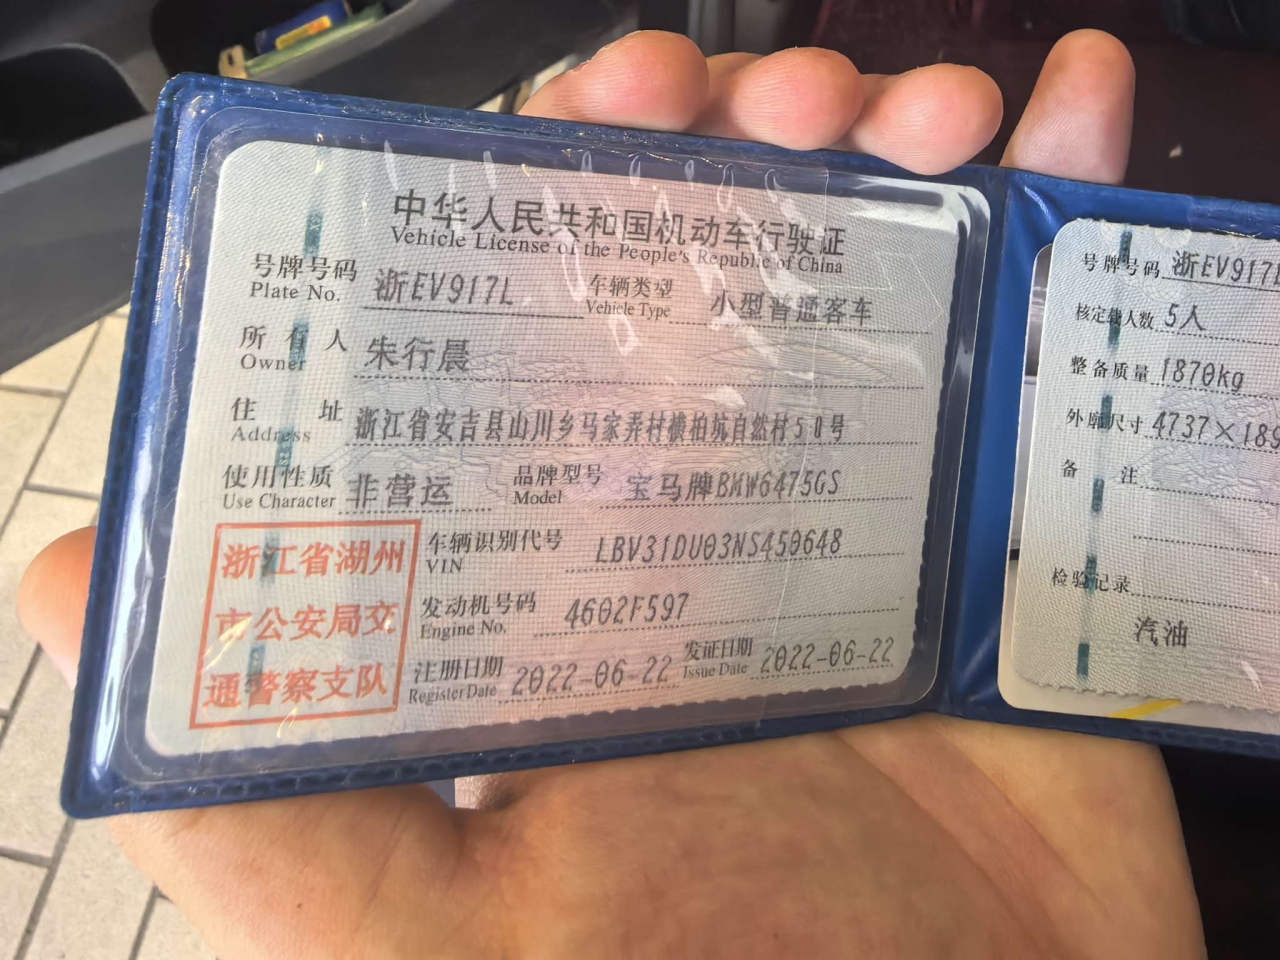 中华人民共和国机动车行驶证
Vehicle License of the People's Republic of China
号牌号码 浙EV917L 车辆类型 小型普通客车
Plate No. Vehicle Type
所有人 朱行晨
Owner
住址 浙江省安吉县山川乡马家弄村横柏坑自然村50号
Address
使用性质 非营运 品牌型号 宝马牌BMW6475GS
Use Character Model
浙江省湖州
市公安局交
通警察支队
车辆识别代号 LBV31DU03NS450648
VIN
发动机号码 4602F597
Engine No.
注册日期 2022-06-22 发证日期 2022-06-22
Register Date Issue Date
号牌号码 浙EV917L
核定载人数 5人
整备质量 1870kg
外廓尺寸 4737×189
备注
检验记录
汽油